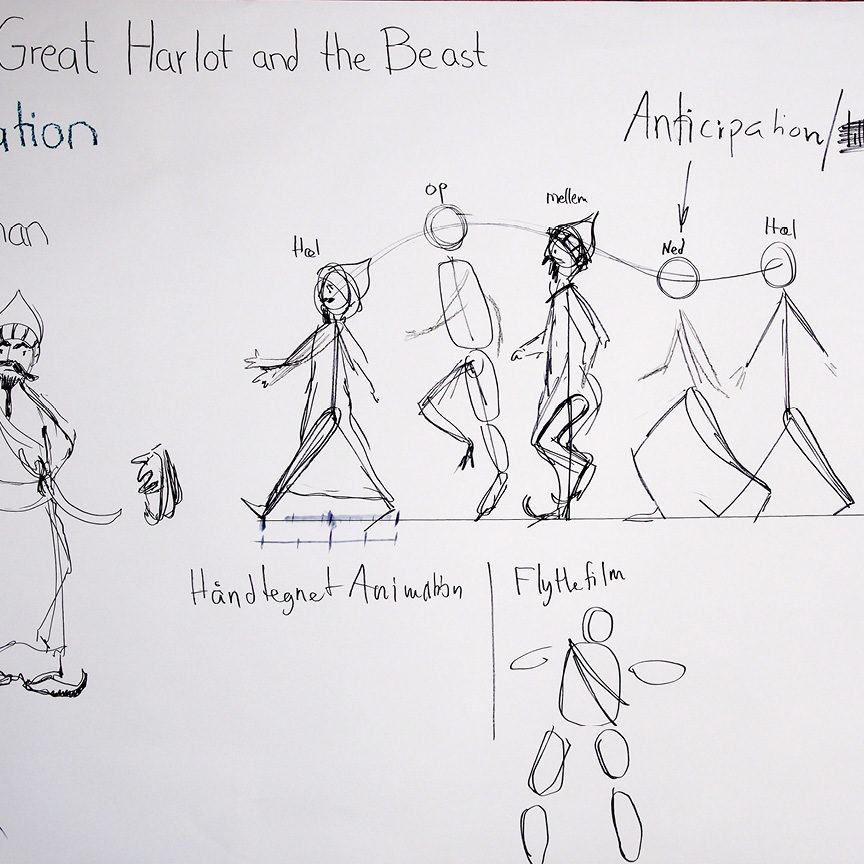 Great Harlot and the Beast
ation
Anticipation/
man
Hæl
Op
mellem
Ned
Hæl
Håndtegnet Animation
Flyttefilm